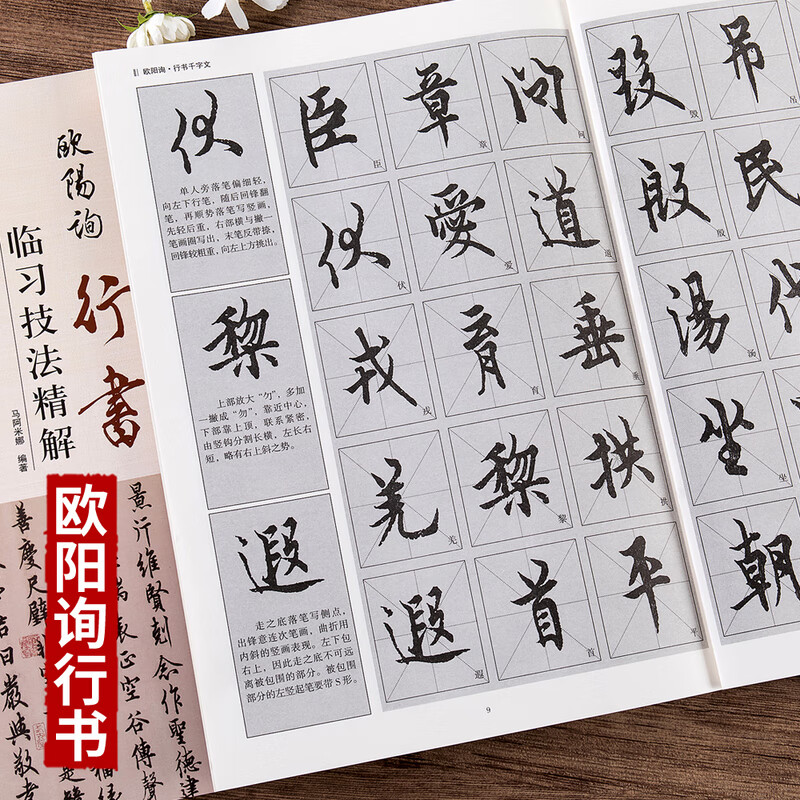 欧阳询·行书千字文
伏
单人旁落笔偏细轻,
向左下行笔,随后回锋翻
笔,再顺势落笔写竖画,
先轻后重,右部横与撇一
笔画圈写出,末笔反带捺,
回锋较粗重,向左上方挑出。
黎
上部放大“勿”,多加
一撇成“勿”,靠近中心,
下部靠上顶,联系紧密,
由竖钩分割长横,左长右
短,略有右上斜之势。
遐
走之底落笔写侧点,
出锋意连次笔画,曲折用
内斜的竖画表现。左下包
右上,因此走之底不可远
离被包围的部分。被包围
部分的左竖起笔要带S形。
臣 章 問
臣 章 问
伏 愛 道
伏 爱 道
戎 育 垂
戎 育 垂
羌 黎 拱
羌 黎 拱
遐 首 平
遐 首 平
9
發 吊
吊
殷 民
殷
湯 伐
汤
坐
坐
朝
欧陽询
行書
临习技法精解
马阿米娜 编著
景行維賢剋念作聖德建
端表正空谷傳聲
善慶尺璧
曰嚴與敬孝
欧阳询行书